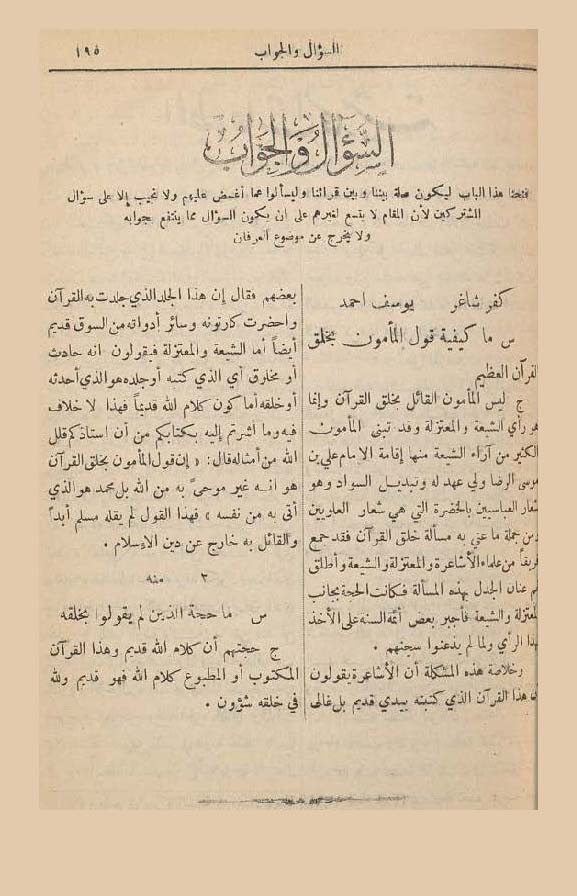 السؤال والجواب ١٩٥
السُّؤال والجواب
فتحنا هذا الباب ليكون صلة بيننا وبين قرائنا وليسألوا عما أغمض عليهم ولا نجيب إلا على سؤال
المشتركين لأن المقام لا يتسع لغيرهم على ان يكون السؤال مما ينتفع بجوابه
ولا يخرج عن موضوع العرفان
كفر شاغر يوسف احمد
س ما كيفية قول المأمون بخلق
القرآن العظيم
ج ليس المأمون القائل بخلق القرآن وانما
هو رأي الشيعة والمعتزلة وقد تبنى المأمون
الكثير من آراء الشيعة منها إقامة الامام علي بن
موسى الرضا ولي عهد له وتبديل السواد وهو
شعار العباسيين بالخضرة التي هي شعار العلويين
ومن جملة ما عني به مسألة خلق القرآن فقد جمع
فريقاً من علماء الأشاعرة والمعتزلة والشيعة وأطلق
لهم عنان الجدل بهذه المسألة فكانت الحجة بجانب
المعتزلة والشيعة فأجبر بعض أئمة السنة على الأخذ
بهذا الرأي ولما لم يذعنوا سجنهم .
وخلاصة هذه المشكلة أن الأشاعرة يقولون
أن هذا القرآن الذي كتبته بيدي قديم بل غالى
بعضهم فقال إن هذا الجلد الذي جلدت به القرآن
واحضرت كارتونه وسائر أدواته من السوق قديم
أيضاً أما الشيعة والمعتزلة فيقولون انه حادث
أو مخلوق أي الذي كتبه أو جلده هو الذي أحدثه
أو خلقه أما كون كلام الله قديماً فهذا لا خلاف
فيه وما اشرتم إليه بكتابكم من أن استاذكم قلل
الله من أمثاله قال : « إن قول المأمون بخلق القرآن
هو انه غير موحىً به من الله بل محمد هو الذي
أتى به من نفسه » فهذا القول لم يقله مسلم أبداً
والقائل به خارج عن دين الإسلام .
٢ منه
س ما حجة الذين لم يقولوا بخلقه
ج حجتهم أن كلام الله قديم وهذا القرآن
المكتوب أو المطبوع كلام الله فهو قديم ولله
في خلقه شؤون .